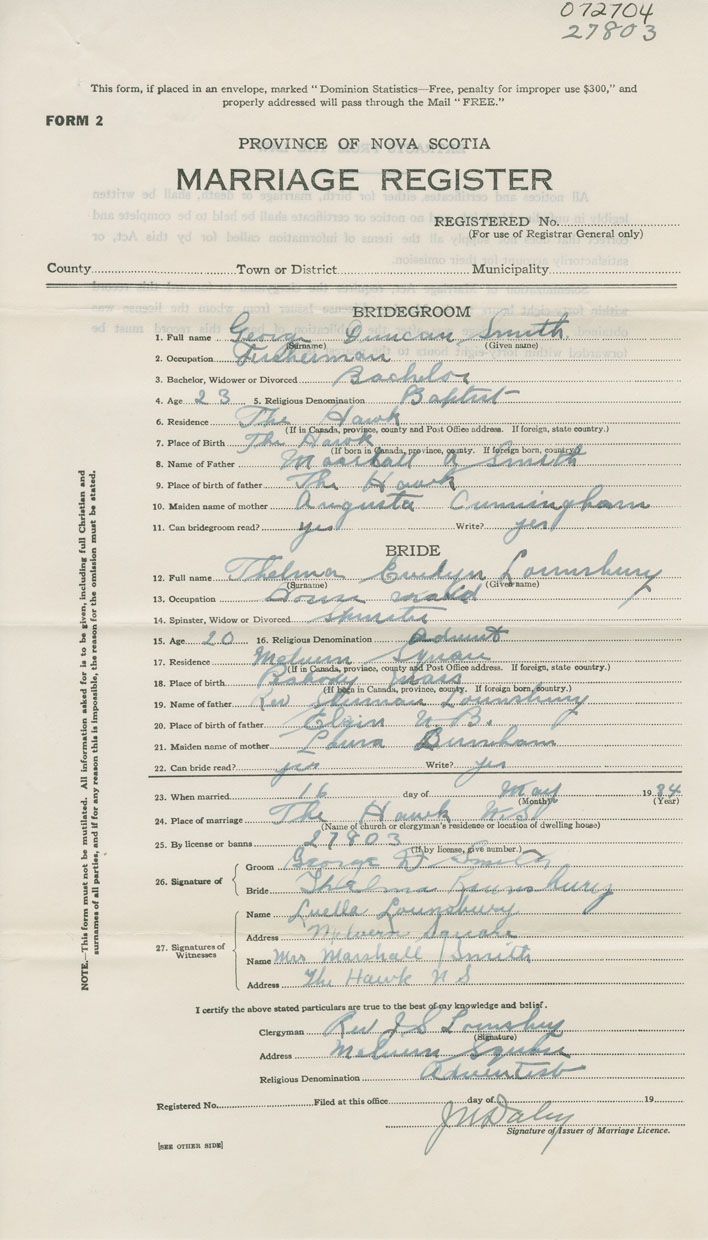 072704
27803
This form, if placed in an envelope, marked "Dominion Statistics—Free, penalty for improper use $300," and
properly addressed will pass through the Mail "FREE."
FORM 2
PROVINCE OF NOVA SCOTIA
MARRIAGE REGISTER
REGISTERED No.
(For use of Registrar General only)
County Town or District Municipality
BRIDEGROOM
1. Full name George Duncan Smith
(Surname) (Given name)
2. Occupation Fisherman
3. Bachelor, Widower or Divorced Bachelor
4. Age 23 5. Religious Denomination Baptist
6. Residence The Hawk
(If in Canada, province, county and Post Office address. If foreign, state country.)
7. Place of Birth The Hawk
(If born in Canada, province, county. If foreign born, country.)
8. Name of Father Marshall A Smith
9. Place of birth of father The Hawk
10. Maiden name of mother Augusta Cunningham
11. Can bridegroom read? yes Write? yes
BRIDE
12. Full name Thelma Evelyn Lounsbury
(Surname) (Given name)
13. Occupation House maid
14. Spinster, Widow or Divorced spinster
15. Age 20 16. Religious Denomination Advent
17. Residence Melvern Square
(If in Canada, province, county and Post Office address. If foreign, state country.)
18. Place of birth Pabody Mass
(If born in Canada, province, county. If foreign born, country.)
19. Name of father Rev Lounsbury
20. Place of birth of father Elgin N.B.
21. Maiden name of mother Laura Burnham
22. Can bride read? yes Write? yes
23. When married 16 day of May 1934
(Month) (Year)
24. Place of marriage The Hawk N.S.
(Name of church or clergyman's residence or location of dwelling house)
25. By license or banns 27803
(If by license, give number.)
26. Signature of Groom George D Smith
Bride Thelma Lounsbury
27. Signatures of Witnesses Name Luella Lounsbury
Address Melvern Square
Name Mrs Marshall Smith
Address The Hawk N S
I certify the above stated particulars are true to the best of my knowledge and belief.
Clergyman Rev J S Lounsbury
(Signature)
Address Melvern Square
Religious Denomination Adventist
Registered No. Filed at this office day of 19
Signature of Issuer of Marriage Licence.
[SEE OTHER SIDE]
NOTE.—This form must not be mutilated. All information asked for is to be given, including full Christian and
surnames of all parties, and if for any reason this is impossible, the reason for the omission must be stated.